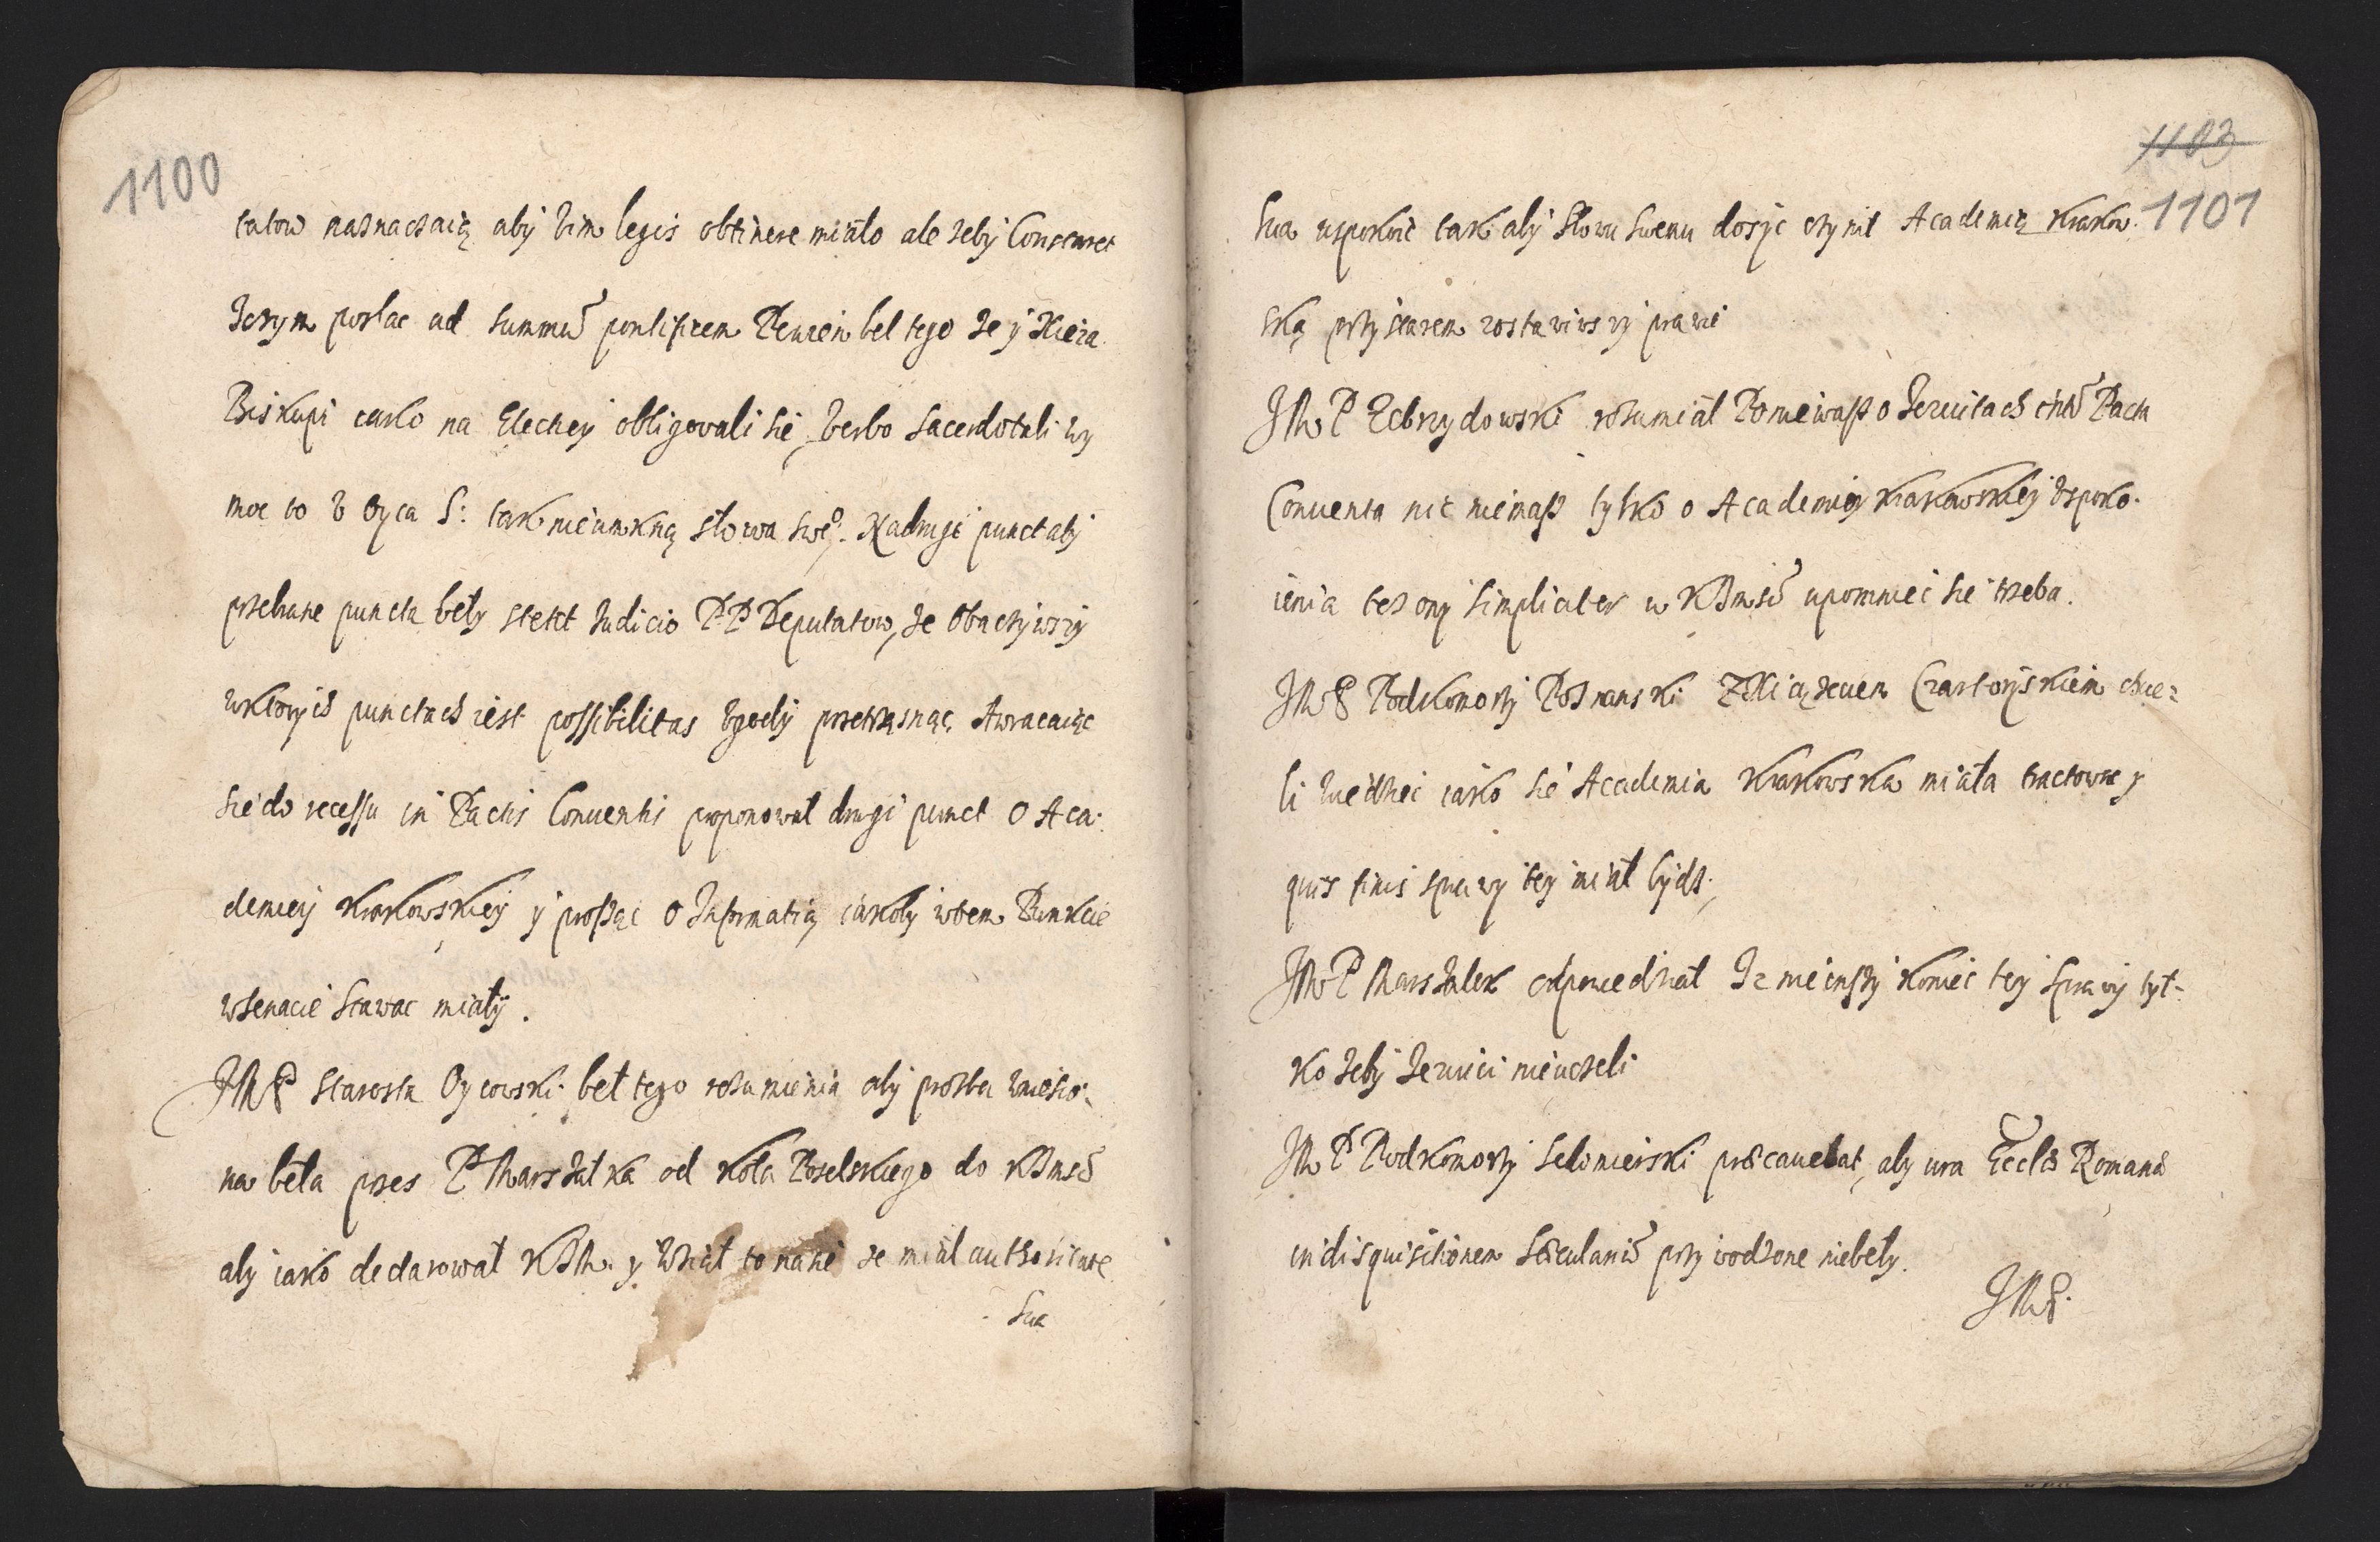 1100
tatow naznaczaią aby vim legis obtinere miało ale zeby
Rzym posłac ad summū pontificem Pewien beł tego ze y Xieza
Biskupi iako na Elechey obligowali sie, verbo sacerdotali wy
moc to v Oyca S: tak nie umkną słowa swe͠o. Na drugi punct aby
przebrane puncta beły stetit Iudicio P.P Deputatow, ze Obaczywszy
w ktorych punctach iest possibilitas zgody przetrząsnąc. A wracaiąc
sie do recessu in Pactis Conuentis proponował drugi punct O Aca-
demiey Krakowskiey y prosząc O Informatią iakoby w tem Punkcie
w senacie stawac miały.
JMP Starosta Oycowski beł tego rozumienia aby prozba wniesio-
na beła przes P Marszałka od Koła Poselskiego do KJmsci
aby iako declarował KJM. y wział to na sie ze miał authoritate
Sua
1103
1101
sua uspokoic tak aby słowu swemu dosyc czynił Academią Krakow-
ską przy starem zostawiwszy prawie
JMP Zebrzydowski rozumiał Poniewasz o Jezuitach Pacta
Conuenta nic niemasz tylko o Academiey Krakowskiey vspoko-
ienia tez ony simpliciter u KJmsci upomniec sie trzeba.
JMP Podkomorzy Poznanski Z Xiązeciem Czartoryskiem chcie-
li wiedziec iako sie Academia Krakowska miała tractowac y
quis finis sprawy tey miał bydz.
JMP Marszałek odpowiedział Iz nie inszy koniec tey sprawy tyl-
ko zeby Jezuici nie uczeli
JMP Podkomorzy Sendomierski præcauebat, aby iura Eccłæ Romanæ
in disquisitionem sæculariū przywodzone niebeły.
JMP.